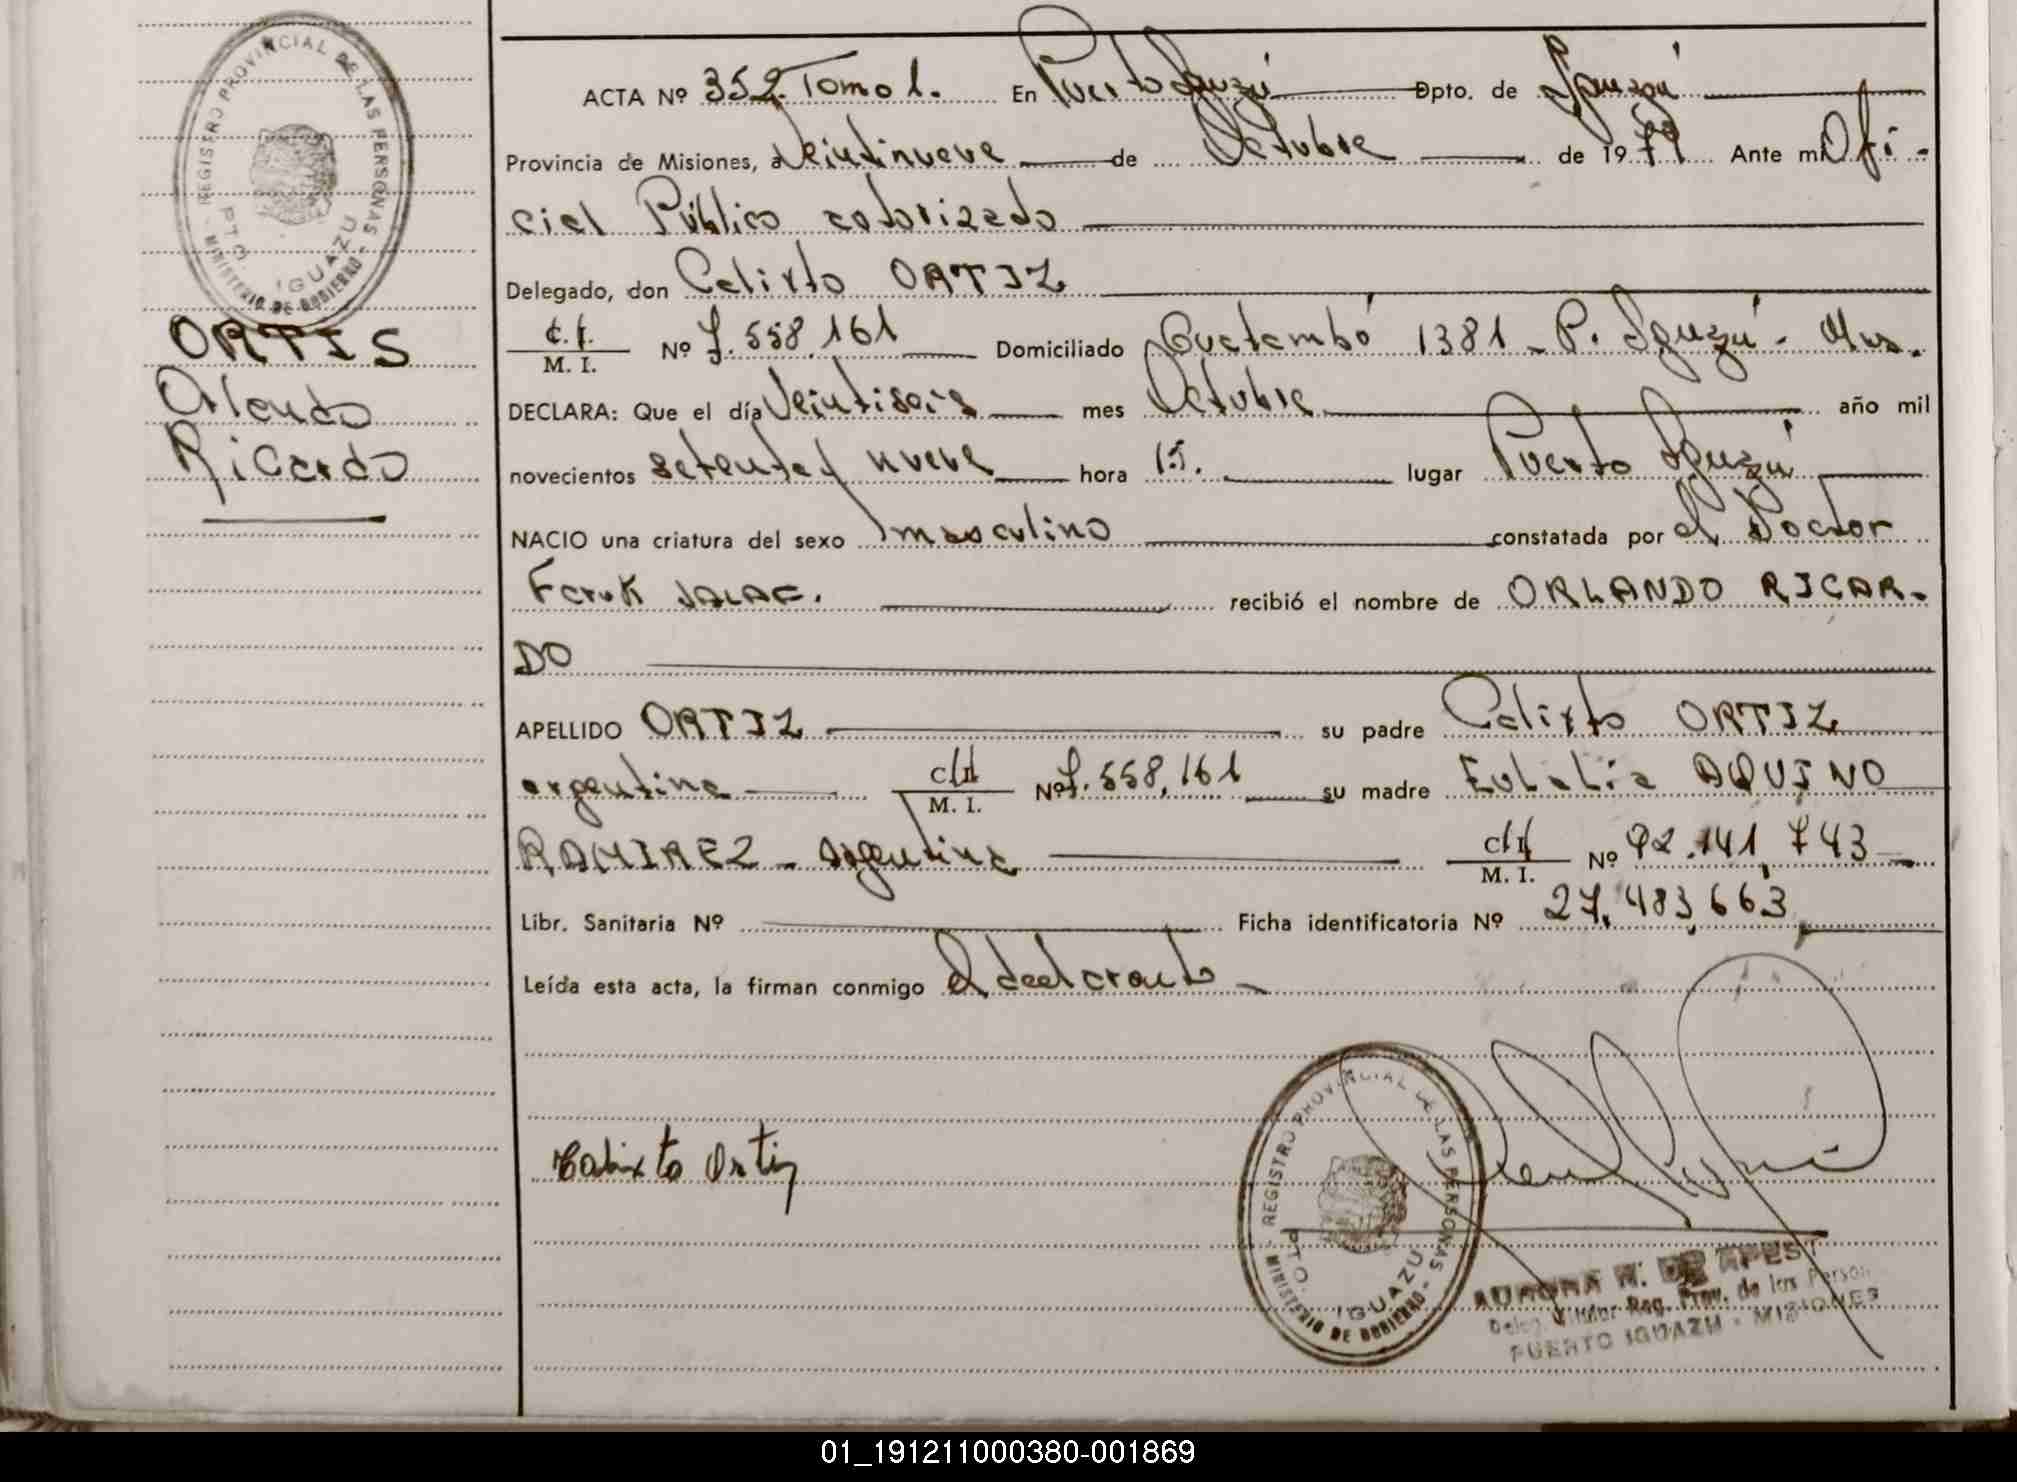 REGISTRO PROVINCIAL DE LAS PERSONAS -
MINISTERIO DE GOBIERNO -
PTO. IGUAZU
ORTIS
Orlando
Ricardo
ACTA Nº 352. Tomo 1. En Puerto Iguazú Dpto. de Iguazú
Provincia de Misiones, a Veintinueve de Octubre de 1979 Ante mi Ofi-
cial Público autorizado
Delegado, don Calixto ORTIZ
C.I. M. I. Nº 7.558.161 Domiciliado Guatambó 1381 - P. Iguazú - Mnes.
DECLARA: Que el día Veintiseis mes Octubre año mil
novecientos setenta y nueve hora 15. lugar Puerto Iguazú
NACIO una criatura del sexo masculino constatada por el Doctor
Faruk JALAF. recibió el nombre de ORLANDO RICAR-
DO
APELLIDO ORTIZ su padre Calixto ORTIZ
argentina M. I. Nº 7.558.161 su madre Eulalia AQUINO
RAMIREZ - argentina M. I. Nº 92.141.743
Libr. Sanitaria Nº Ficha identificatoria Nº 27.483.663
Leída esta acta, la firman conmigo el declarante -
Calixto Ortiz
REGISTRO PROVINCIAL DE LAS PERSONAS -
MINISTERIO DE GOBIERNO -
PTO. IGUAZU
AURORA N. DE
Reg. Prov. de las Person
PUERTO IGUAZU - MISIONES
01_191211000380-001869